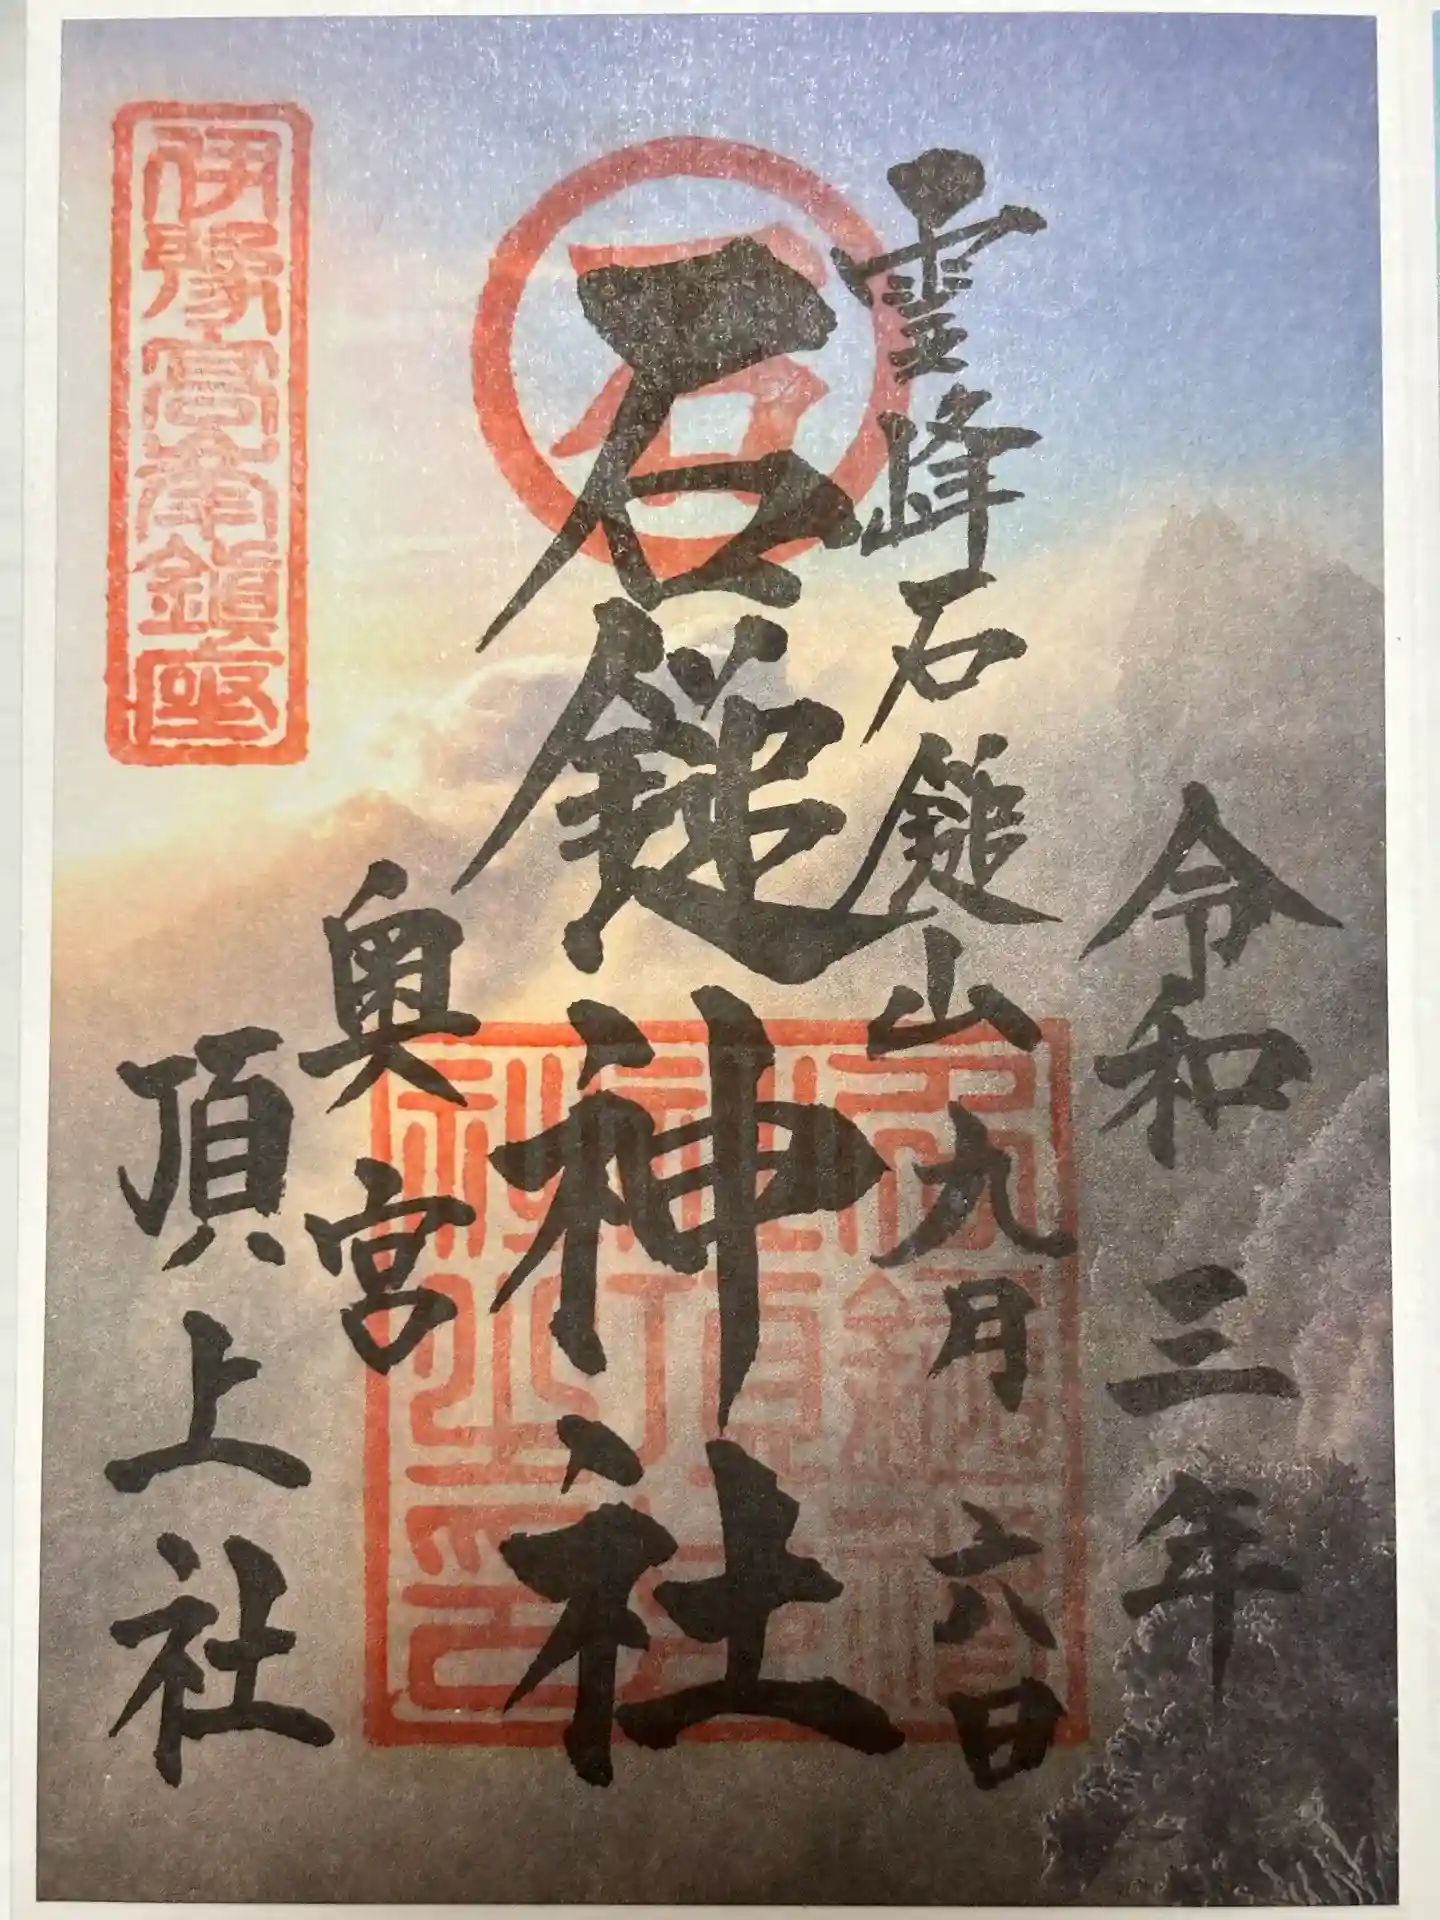 令和三年
九月六日
霊峰石鎚山
石鎚神社
奥宮
頂上社
石
伊豫高嶺鎮座